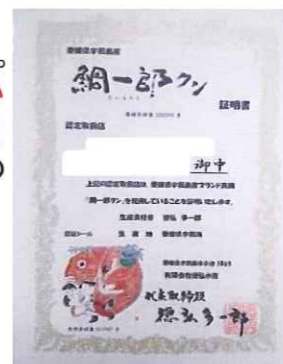 愛媛県宇和島産
鯛一郎クン
証明書
認定取扱店
御中
上記の認定取扱店は、愛媛県宇和島産ブランド真鯛
「鯛一郎クン」を使用していることを証明いたします。
生産責任者 徳弘 多一郎
生産地 愛媛県宇和島
有限会社徳弘水産
代表取締役
徳弘多一郎